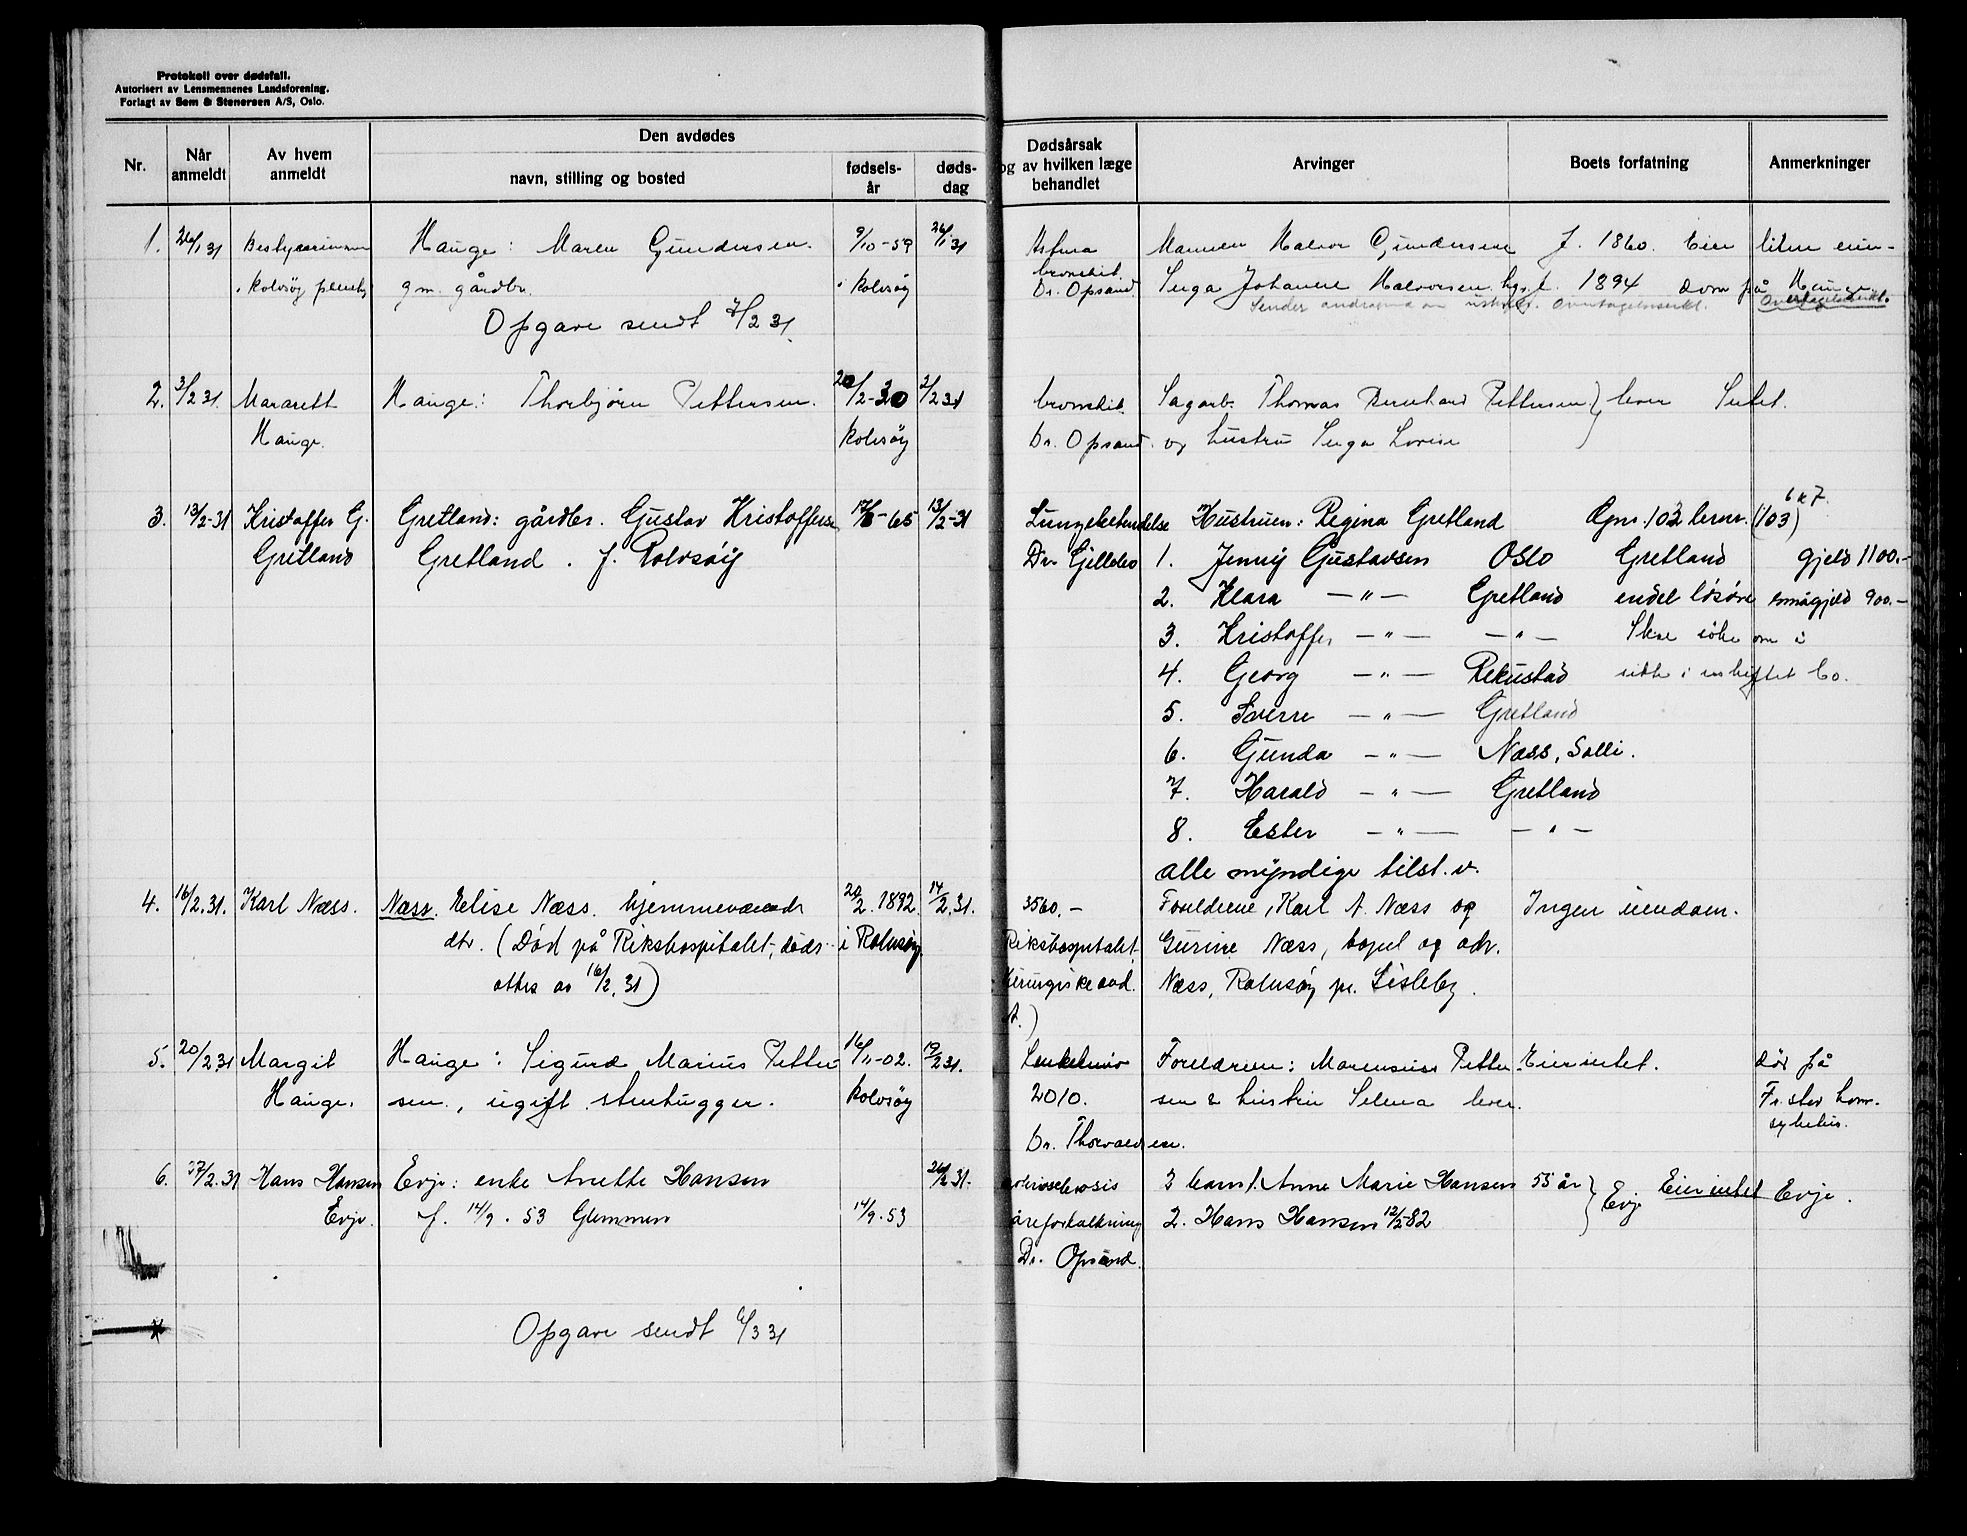 Protokoll over dødsfall.
Autorisert av Lensmennenes Landsforening.
Forlagt av Sem & Stenersen A/S, Oslo.
Nr.
Når anmeldt
Av hvem anmeldt
Den avdødes
navn, stilling og bosted
fødsels-år
døds-dag
Dødsårsak
og av hvilken læge
behandlet
Arvinger
Boets forfatning
Anmerkninger
1. 26/1 31 Hauge: Maren Gundersen. 9/10-59 26/1 31
gm. gårdbr. Rolvsøy
Opgave sendt 2/2 31.
Astma Mannen Halvor Gundersen f. 1860. Eier liten eien-
bronchit.
Dr. Opsand Inga Johanne Halvorsen f. 1894 dom på Hauge.
Overtagelsesskt.
2. 3/2 31. Mararett Hauge: Thorbjørn Pettersen. 20/2-30 2/2 31
Hauge. Rolvsøy
bronchit. Sagarb. Thomas Bernhard Pettersen } lever Intet.
Dr. Opsand. og hustru Inga Lovise
3. 13/2-31 Kristoffer G. Gretland: gårdbr. Gustav Kristoffersen -65 13/2-31
Gretland Gretland. f. Rolvsøy
Hustruen: Regina Gretland Gnr. 102 brnr. (103) 6 & 7
Dr. 1. Jenny Gustavsen Oslo Gretland gjeld 1100.-
2. Klara -"- Gretland endel løsøre smågjeld 900.-
3. Kristoffer -"- -"- Skal søke om å
4. Georg -"- Rekustad sitte i uskiftet bo.
5. Sverre -"- Gretland
6. Gunda -"- Næss, Solli.
7. Harald -"- Gretland
8. Ester -"- -"-
alle myndige tilst. v.
4. 16/2.31. Karl Næss. Næss. Elise Næss. hjemmeværende 20/2.1892 14/2.31.
dtr. (Død på Rikshospitalet, døds- i Rolvsøy
attes av 16/2.31)
3560.- Foreldrene, Karl A. Næss og Ingen eiendom.
Rikshospitalet, Gurine Næss, bopel og adr.
kirurgiske avd. Næss, Rolvsøy pr. Lisleby.
A.)
5. 20/2 31 Margit Hauge: Sigurd Marius Petter- 16/11-02. 19/2 31.
Hauge. sen., ugift stenhugger. Rolvsøy
Foreldrene: Marensius Petter- Eier intet. Død på
2010. sen & hustru Selma lever. Fr.stad kom.
sykehus.
Dr. Thorvaldsen.
6. 27/2.31 Hans Hansen Evje: enke Anette Hansen 26/2 31.
Evje. f. 14/9.53 Glemmen 14/9.53
2 barn 1. Anne Marie Hansen 53 år } Evje Eier intet Evje.
åreforkalkning 2. Hans Hansen 12/5-82
Dr. Opsand.
Opgave sendt 6/3 31